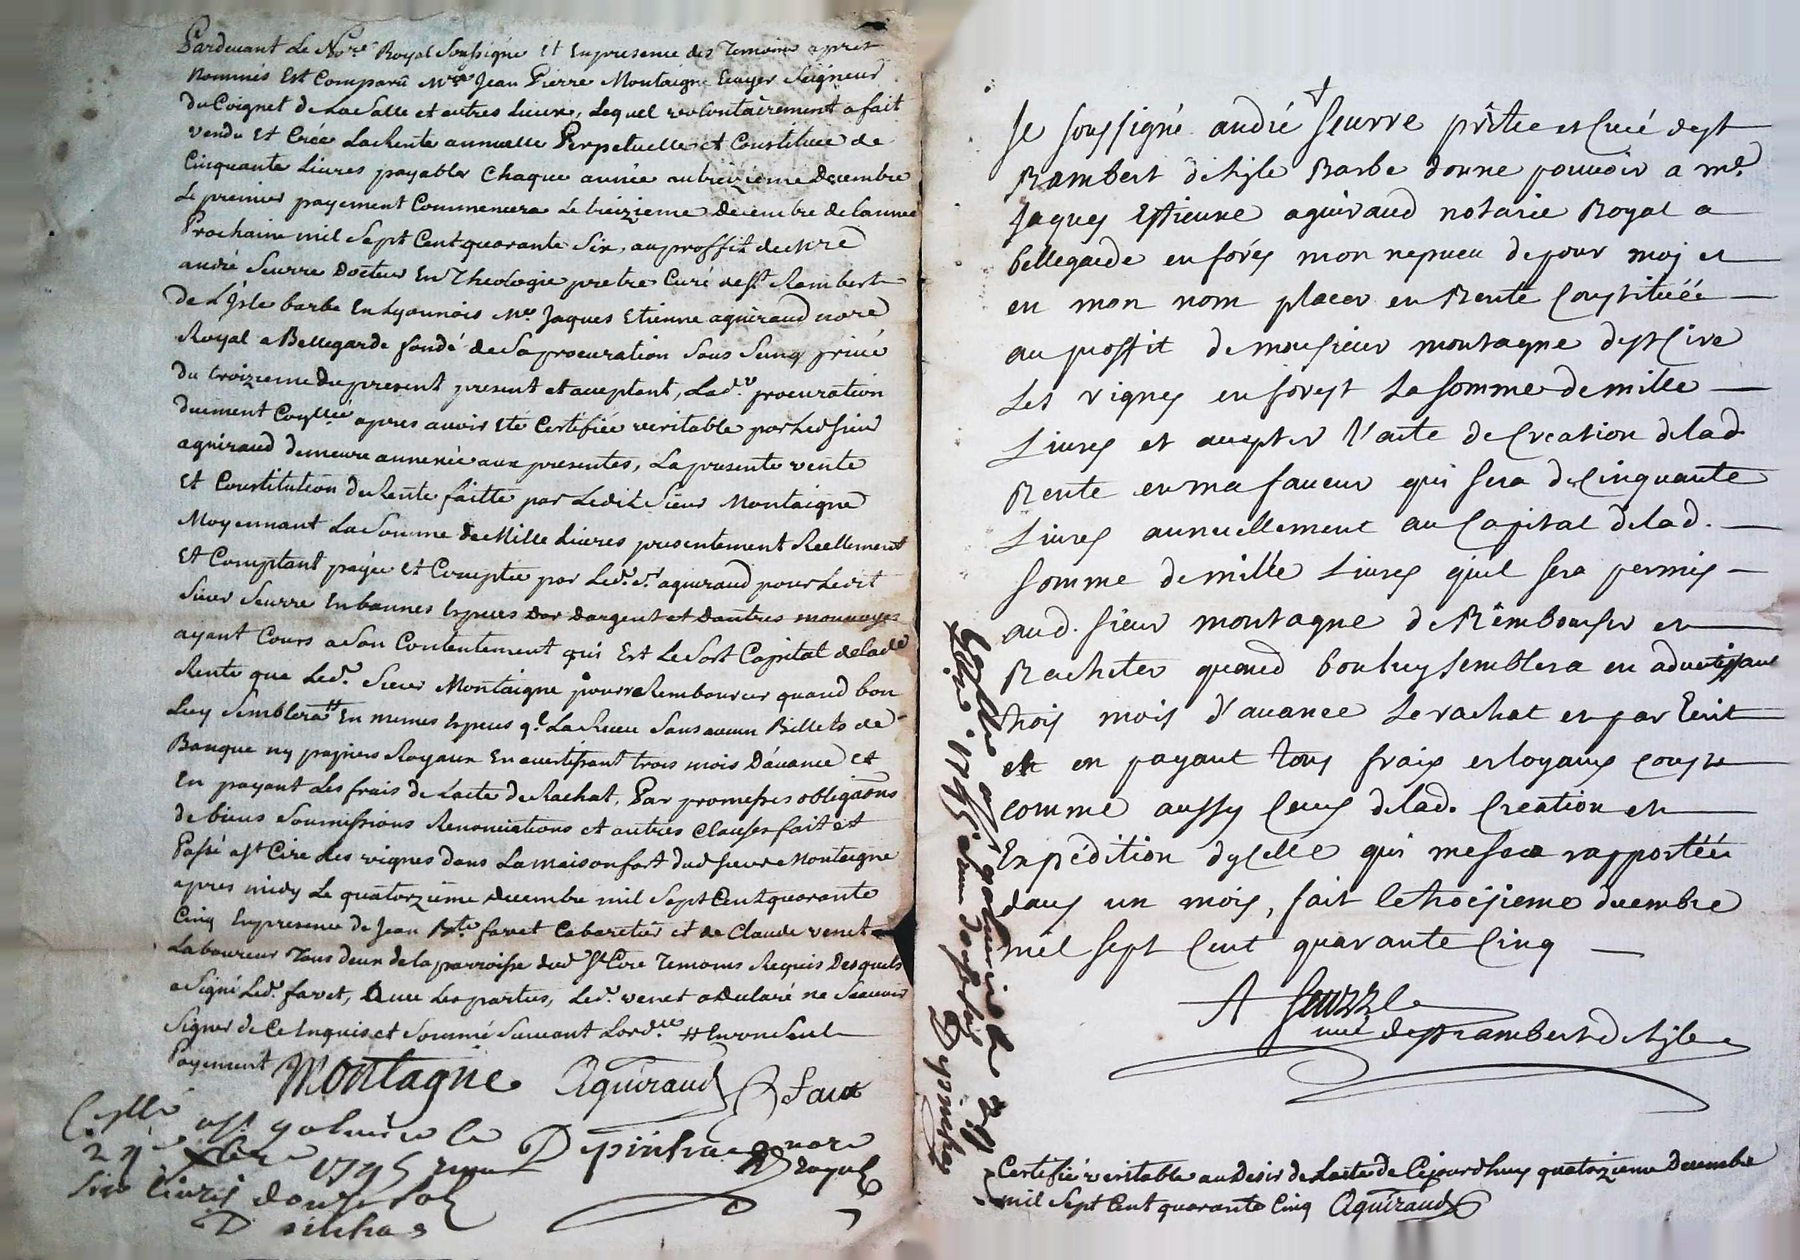 Pardevant Le Nore Royal Soussigné Et Enpresence des Temoins apres
Nommés Est Comparû Mre Jean Pierre Montaigne Ecuyer Seigneur
Du Coignet de La Salle et autres Lieux, Lequel volontairement a fait
vendu Et Créé La Rente annuelle Perpetuelle et Constituée de
Cinquante Livres payables Chaque année au treizieme Decembre
Le premier payement Commencera Le treizieme Decembre de lannee
Prochaine mil Sept Cent quarante Six, au proffit de Mre
andré Seurre Docteur En Theologie pretre Curé de St Rambert
de L'Isle barbe En Lyonnois Me Jaques Etienne aguiraud nore
Royal a Bellegarde fondé de Sa procuration Sous Seing privé
du troizieme du present present et acceptant, Lade procuration
duement Coyllée apres avoir Eté Certifiée veritable par Led Sieur
aguiraud demeure annexée aux presentes, La presente vente
Et Constitution de Rente faitte par Ledit Sieur Montaigne
Moyennant La Somme de Mille Livres presentement Reellement
Et Comptant payée Et Comptée par Led. Sr aguiraud pour Ledit
Sieur Seurre En bonnes Especes Dor Dargent et Dautres monnoyes
ayant Cours a Son Contentement qui Est Le Sort Capital de lade
Rente que Led. Sieur Montaigne pourra Rembourcer quand bon
Luy Semblera # En memes Especes qe La Receu Sans aucun Billets de
Banque ny papiers Royaux En avertissant trois mois D'avance et
En payant Les frais de L'acte de Rachat, Par promesses obligaons
de biens Soumissions Renonciations et autres Clauses fait et
Passé a St Cire des vignes dans La maison fort dud Sieur Montaigne
apres midy Le quatorzieme Decembre mil Sept Cent quarante
Cinq Enpresence de Jean Bte favet Cabaretier et de Claude venet
Laboureur Tous deux de la parroisse dud St Cire Temoins Requis Desquels
a Signé Led. favet, Avec Les parties, Led. venet a Declaré ne Scavoir
Signer de Ce Enquis et Sommé Suivant Lordce # En un Seul
Payement
Montagne Aguiraud
Coyllé a St galmier le
29e Xbre 1745 Depinhac nore
Six livres douze sols Royal
Depinhac
Je soussigné andré Seurre prêtre et Curé de st
Rambert de lisle Barbe donne pouvoir a me.
Jaques Estienne aguiraud notaire Royal a
bellegarde en forés mon nepveu de pour moi et
en mon nom placer en Rente Constituée
au proffit de monsieur montagne de st Cire
Les vignes en forest La Somme de mille
Livres et accepter l'acte de Creation de lad.
Rente en ma faveur qui sera de Cinquante
Livres annuellement au Capital de lad.
Somme de mille Livres quil sera permis
aud. sieur montagne de Rêmbourser et
Racheter quand bon luy semblera en advertissant
trois mois d'avance Le rachat et par Ecrit
et en payant tous fraix et loyaux cousts
comme aussy Ceux de lad. Creation et
Expédition dycelle qui me sera rapportée
dans un mois, fait le troisieme decembre
mil sept Cent quarante Cinq
A Seurre
curé de st rambert de lisle
Coyllé a St galmier le 29
Xbre 1745
Depinhac
Certifié veritable au Desir de Lacte de Cejourdhuy quatorzieme Decembre
mil Sept Cent quarante Cinq Aguiraud